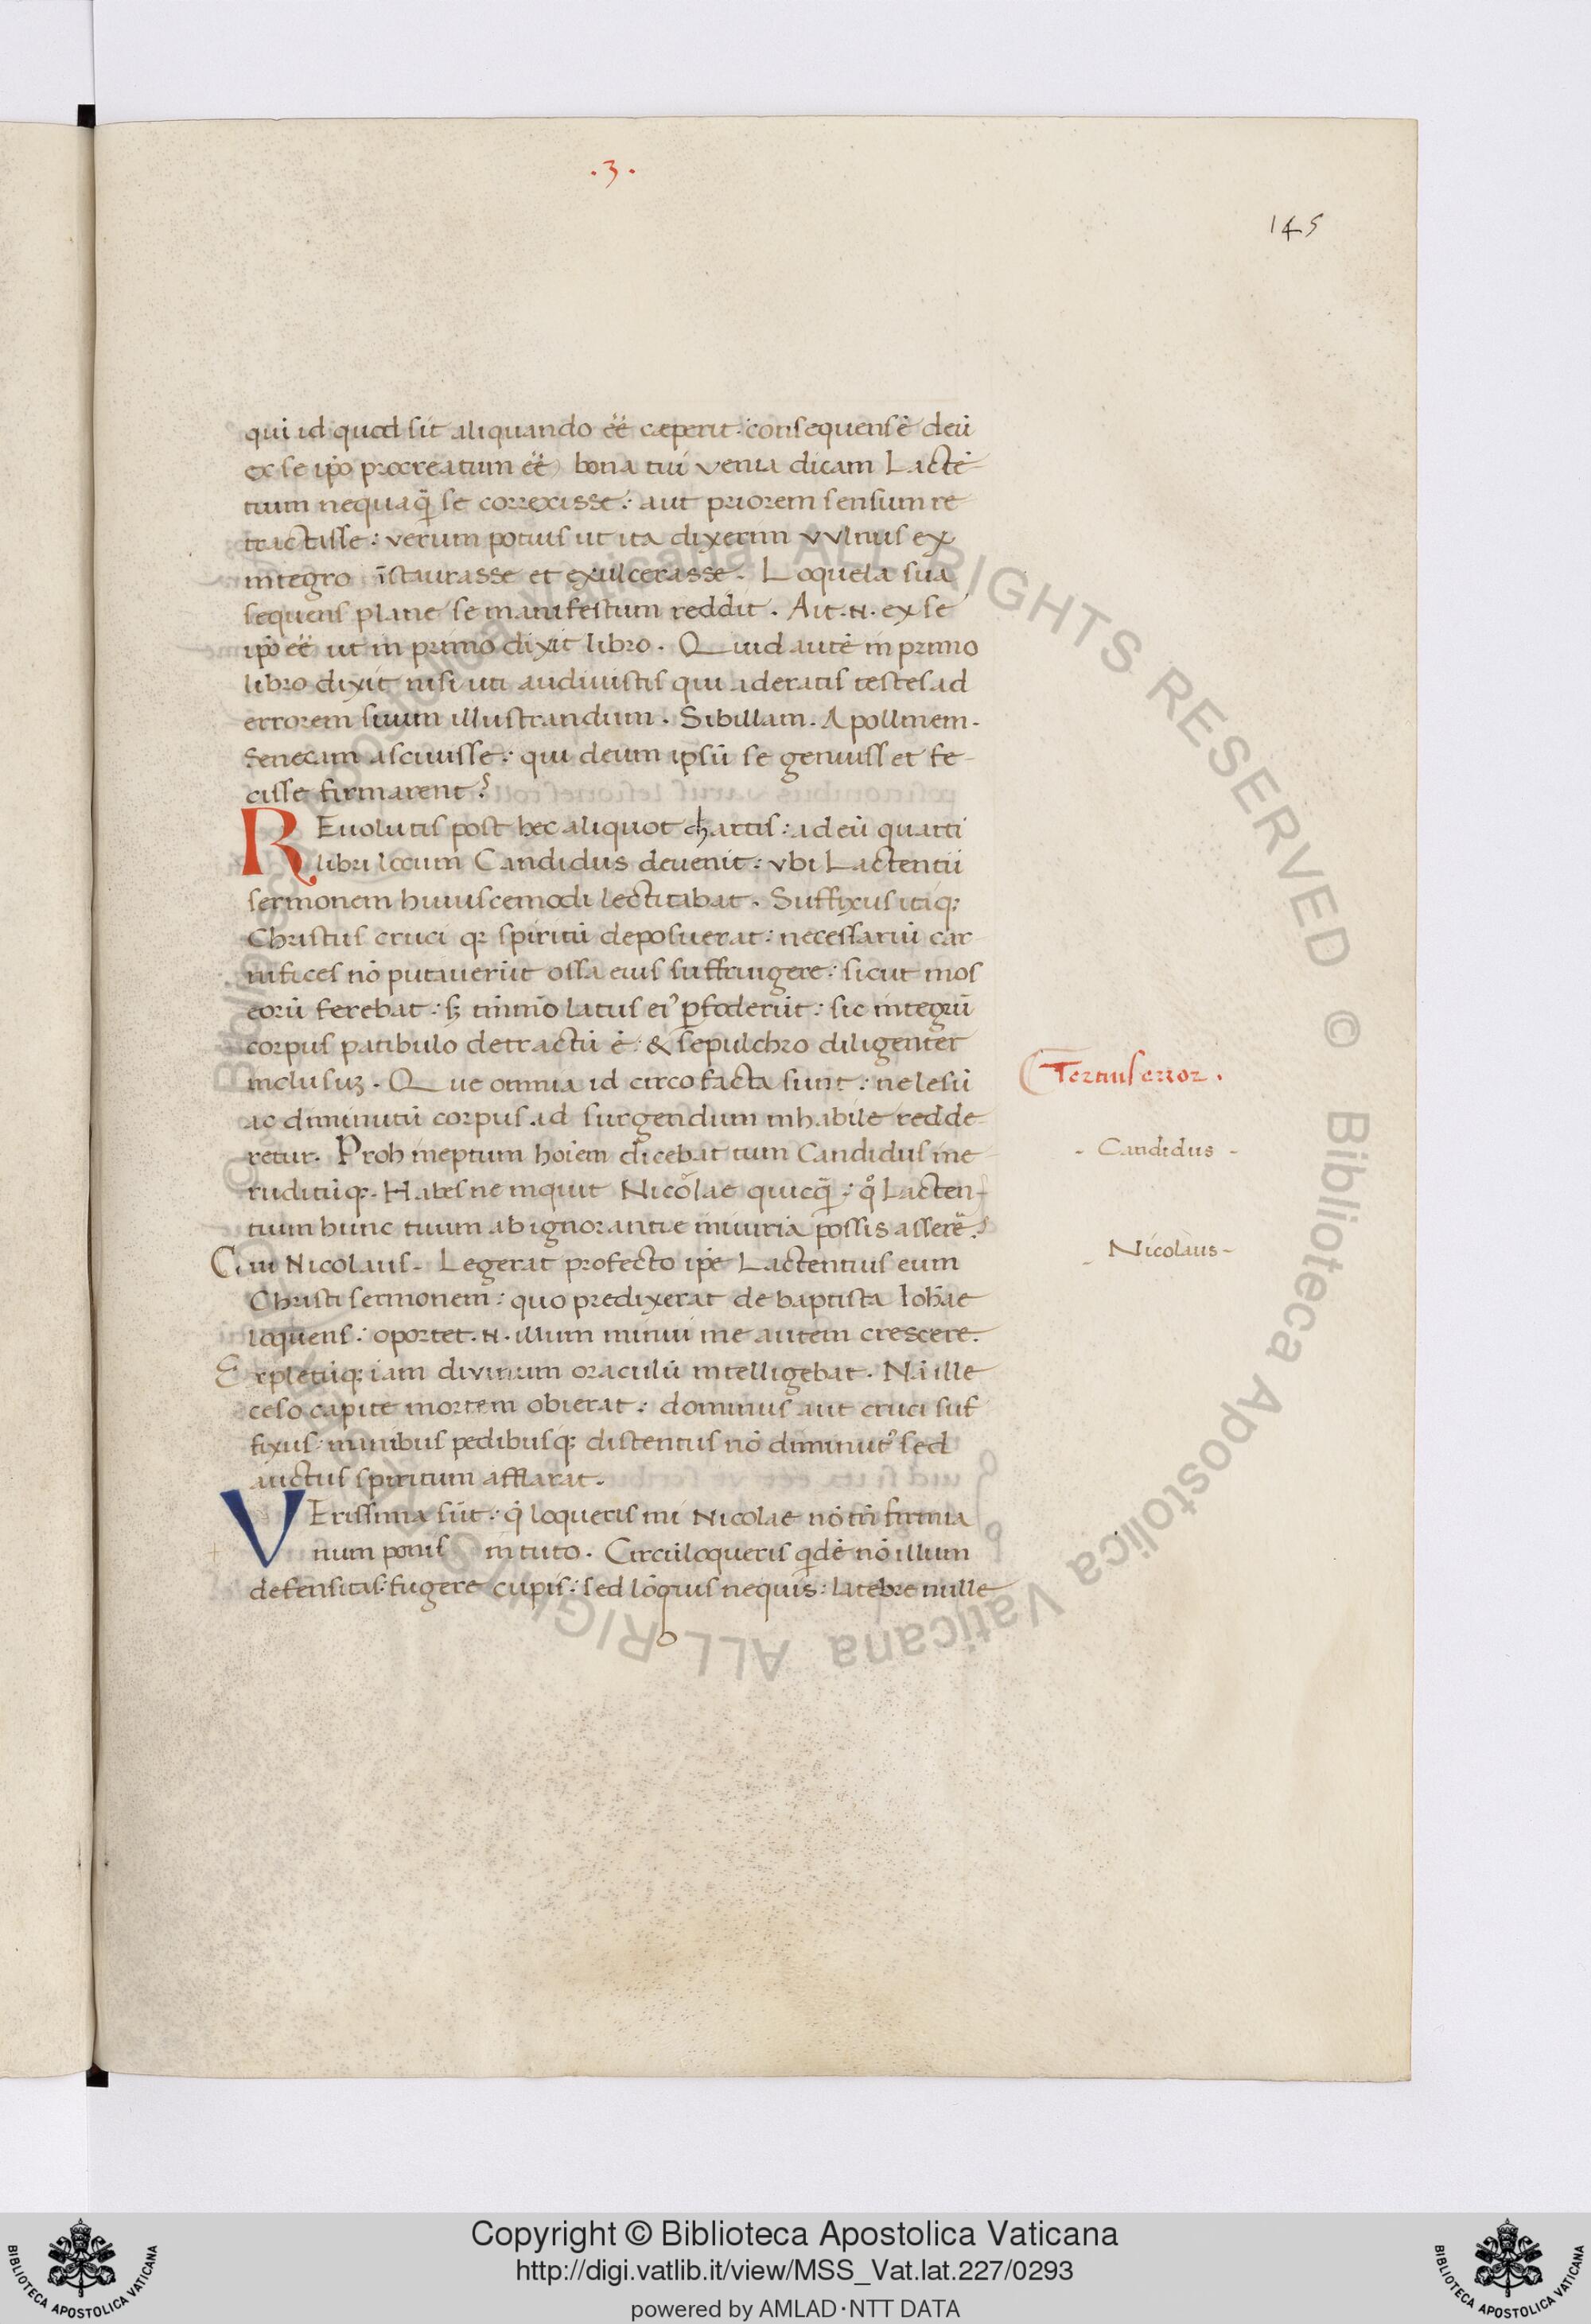 .3.
145
qui id quod sit aliquando eē cæperit: consequens ē deū
ex se ip̄o procreatum eē) bona tui venia dicam Lactē-
tium nequaq̄ se correxisse: aut priorem sensum re
tractasse: verum potius ut ita dixerim vvlnus ex
integro īstaurasse et exulcerasse. Loquela sua
sequens plane se manifestum reddit. Ait .N. ex se
ip̄o eē ut in primo dixit libro. Quid autē in primo
libro dixit nisi uti audiuistis qui aderatis testes ad
errorem suum illustrandum. Sibillam. Apollinem.
Senecam asciuisse: qui deum ipsū se genuiss et fe-
cisse firmarent?
REuolutis post hec aliquot chartis: ad eū quarti
libri locum Candidus deuenit: vbi Lactentii
sermonem huiuscemodi lectitabat. Suffixus itaq;
Christus cruci q; spiritū deposuerat: necessariū car-
nifices nō putauerūt ossa eius suffringere: sicut mos
eorū ferebat: sꝫ tm̄mō latus ei' ꝑfoderūt: sic integrū
corpus patibulo detractū ē: & sepulchro diligenter
inclusuꝫ. Que omnia id circo facta sunt: ne lesū
ac diminutū corpus ad surgendum inhabile redde-
retur. Proh ineptum hoīem dicebat tum Candidus ine-
ruditūq;. Habesne inquit Nicolae quicq̄: qͦ Lacten-
tium hunc tuum ab ignorantie iniuria possis asserē?
Cui Nicolaus. Legerat profecto ip̄e Lactentius eum
Christi sermonem: quo predixerat de baptista Ioh̄ae
loquens: oportet .N. illum minui me autem crescere.
Expletūq; iam diuinum oraculū intelligebat. Nā ille
ceso capite mortem obierat: dominus aut cruci suf
fixus: manibus pedibusq; distentus nō diminut' sed
auctus spiritum afflarat.
VErissima sūt: q̄ loqueris mi Nicolae nō tn̄ firmia
num ponis in tuto. Circūloqueris q̄dē nō illum
defensitas: fugere cupis: sed lōgius nequis: latebre nulle
Tertius error.
- Candidus -
- Nicolaus -
Copyright © Biblioteca Apostolica Vaticana
http://digi.vatlib.it/view/MSS_Vat.lat.227/0293
powered by AMLAD·NTT DATA
BIBLIOTECA APOSTOLICA VATICANA
BIBLIOTECA APOSTOLICA VATICANA
© Biblioteca Apostolica Vaticana ALL RIGHTS RESERVED © Biblioteca Apostolica Vaticana ALL RIGHTS RESERVED